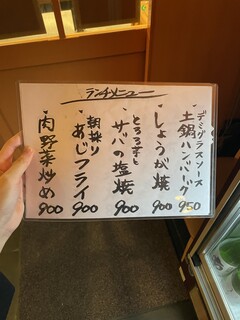 ランチメニュー
デミグラスソース
土鍋ハンバーグ
950
しょうが焼
900
とろろ芋と
サバの塩焼
900
朝採り
あじフライ
900
肉野菜炒め
900